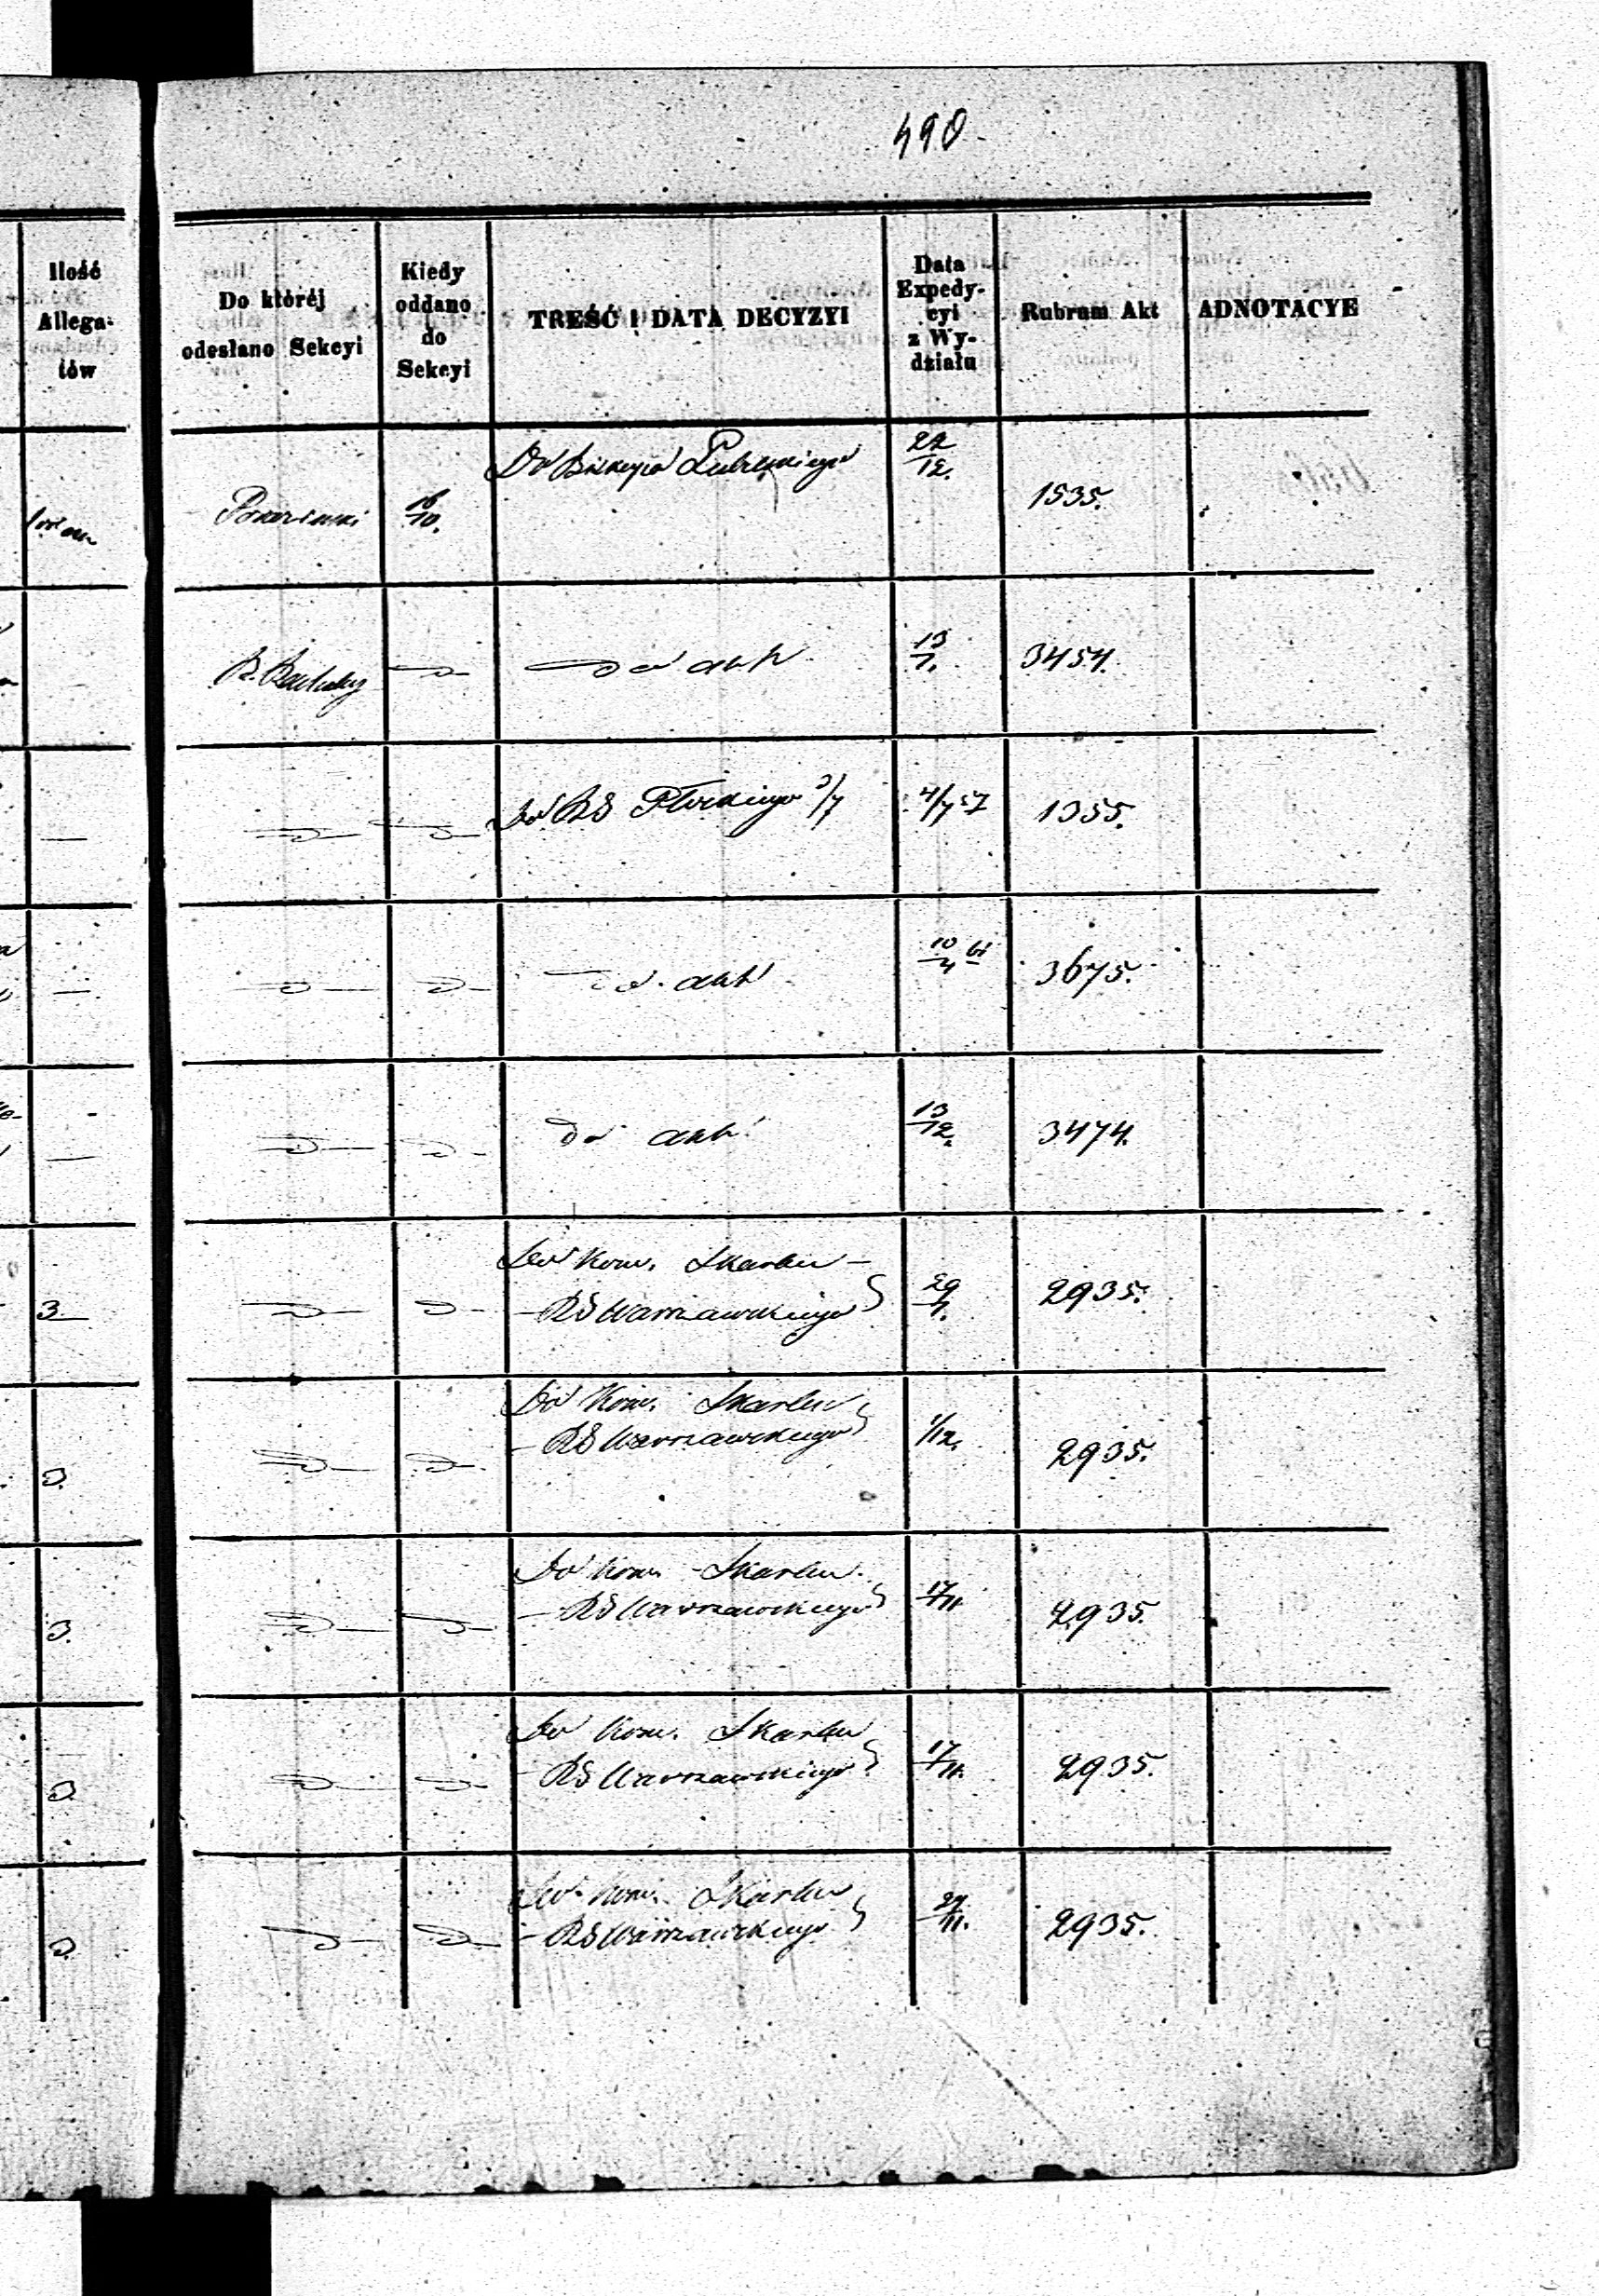 490
Ilość Allega- tów
Do któréj odesłano Sekcyi
Kiedy oddano do Sekcyi
TREŚĆ I DATA DECYZYI
Data Expedy- cyi z Wy- działu
Rubrum Akt
ADNOTACYE
16/10.
Do Biskupa Lubelskiego
22/12.
1535.
do akt
13/1.
3454.
Do RG Płockiego 3/7
4/7 57
1355.
do akt
10/4
3675.
do akt
13/12.
3474.
3
Do Kom. Skarbu
— RG Warszawskiego
29/1.
2935.
3.
Do Kom. Skarbu
— RG Warszawskiego
1/12.
2935.
3.
Do Kom. Skarbu
— RG Warszawskiego
17/11.
2935.
3
Do Kom. Skarbu
— RG Warszawskiego
17/11.
2935.
3.
Do Kom. Skarbu
— RG Warszawskiego
2935.